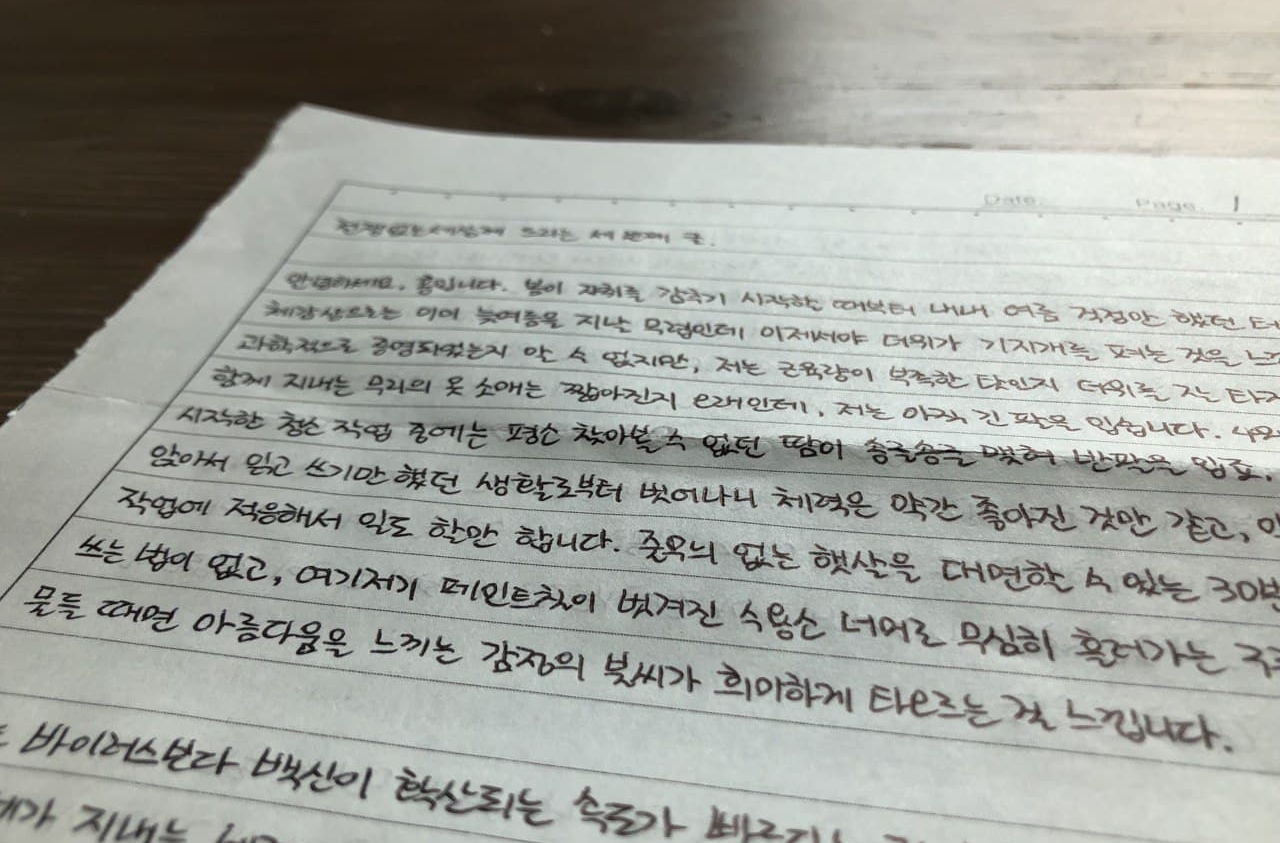 Date. Page. 1
전쟁없는세상에 드리는 세 번째 글.
안녕하세요, 홍입니다. 봄이 자취를 감추기 시작한 때부터 내내 여름 걱정만 했던 터
체감상으로는 이미 늦여름을 지난 무렵인데 이제서야 더위가 기지개를 펴는 것을 느
과학적으로 증명되었는지 알 수 없지만, 저는 근육량이 부족한 탓인지 더위를 잘 타지
함께 지내는 무리의 옷 소매는 짧아진지 오래인데, 저는 아직 긴 팔을 입습니다. 4월
시작한 청소 작업 중에는 평소 찾아볼 수 없던 땀이 송글송글 맺혀 반팔을 입죠.
앉아서 읽고 쓰기만 했던 생활로부터 벗어나니 체력은 약간 좋아진 것만 같고,
작업에 적응해서 일도 할만 합니다. 줄무늬 없는 햇살을 대면할 수 있는 30번
쓰는 법이 없고, 여기저기 페인트칠이 벗겨진 수용소 너머로 무심히 흘러가는 구
물들 때면 아름다움을 느끼는 감정의 불씨가 희미하게 타오르는 걸 느낍니다.
바이러스보다 백신이 확산되는 속도가 빠르지
지내는